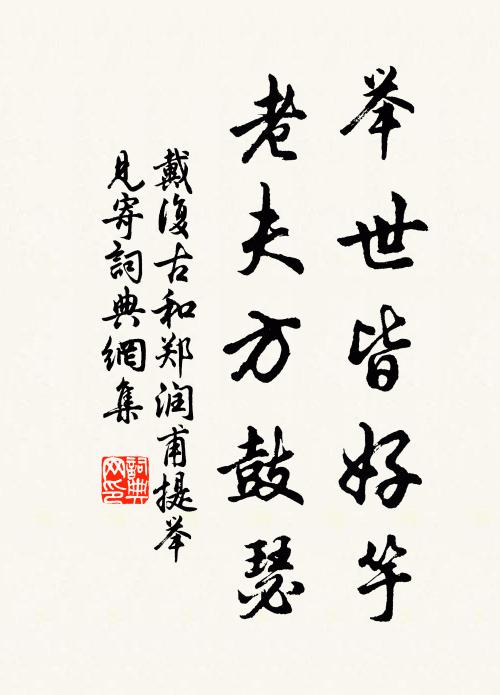 举世皆好竽
老夫方鼓瑟
戴復古和郑润甫提举
見寄詞典網集
詞典网印